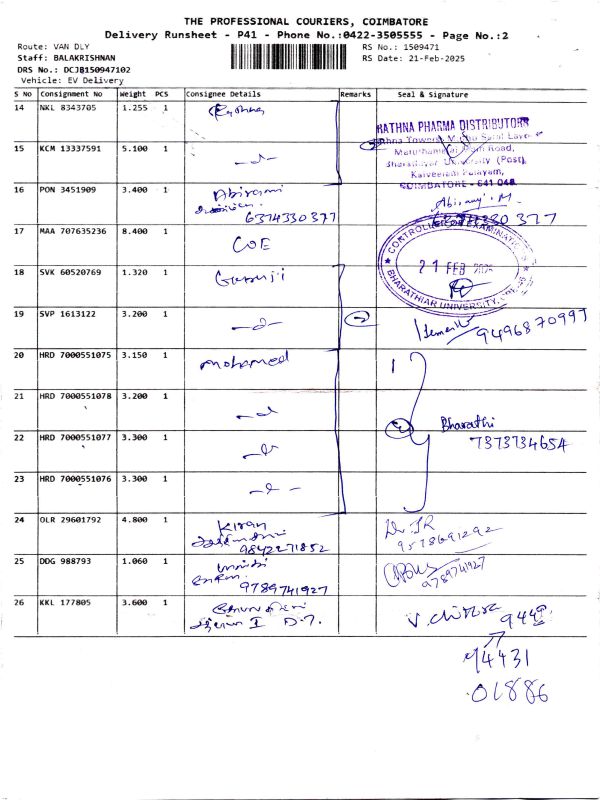 THE PROFESSIONAL COURIERS, COIMBATORE
Delivery Runsheet - P41 - Phone No.:0422-3505555 - Page No.:2
Route: VAN DLY
RS No.: 1509471
Staff: BALAKRISHNAN
RS Date: 21-Feb-2025
DRS No.: DCJB150947102
Vehicle: EV Delivery
S No Consignment No Weight PCS Consignee Details Remarks Seal & Signature
14 NKL 8343705 1.255 1
RATHNA PHARMA DISTRIBUTORS
15 KCM 13337591 5.100 1 -"-
Road,
Bharathiyar University (Post),
Kalveeram Palayam,
COIMBATORE - 641 046
16 PON 3451909 3.400 1 Abirami
6374330377
Abiramy. M
6374330377
17 MAA 707635236 8.400 1 COE
CONTROLLER OF EXAMINATIONS
21 FEB 2025
BHARATHIAR UNIVERSITY, CBE-46
18 SVK 60520769 1.320 1 Guruji
19 SVP 1613122 3.200 1 -"- 2
9496870997
20 HRD 7000551075 3.150 1 mohamed
21 HRD 7000551078 3.200 1 -"-
Bharathi
22 HRD 7000551077 3.300 1 -"- 4
7373734654
23 HRD 7000551076 3.300 1 -"-
24 OLR 29601792 4.800 1 Kiran
9842271852
9578691292
25 DDG 988793 1.060 1
9789741927
9789741927
26 KKL 177805 3.600 1
I D.7.
V. chitra 944
94431
01886